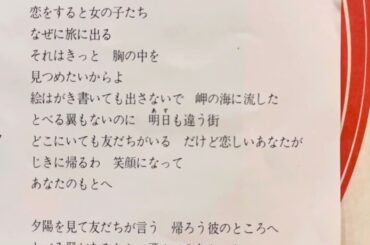 恋をすると女の子たち
なぜに旅に出る
それはきっと　胸の中を
見つめたいからよ
絵はがき書いても出さないで　岬の海に流した
とべる翼もないのに　明日も違う街
どこにいても友だちがいる　だけど恋しいあなたが
じきに帰るわ　笑顔になって
あなたのもとへ
夕陽を見て友だちが言う　帰ろう彼のところへ